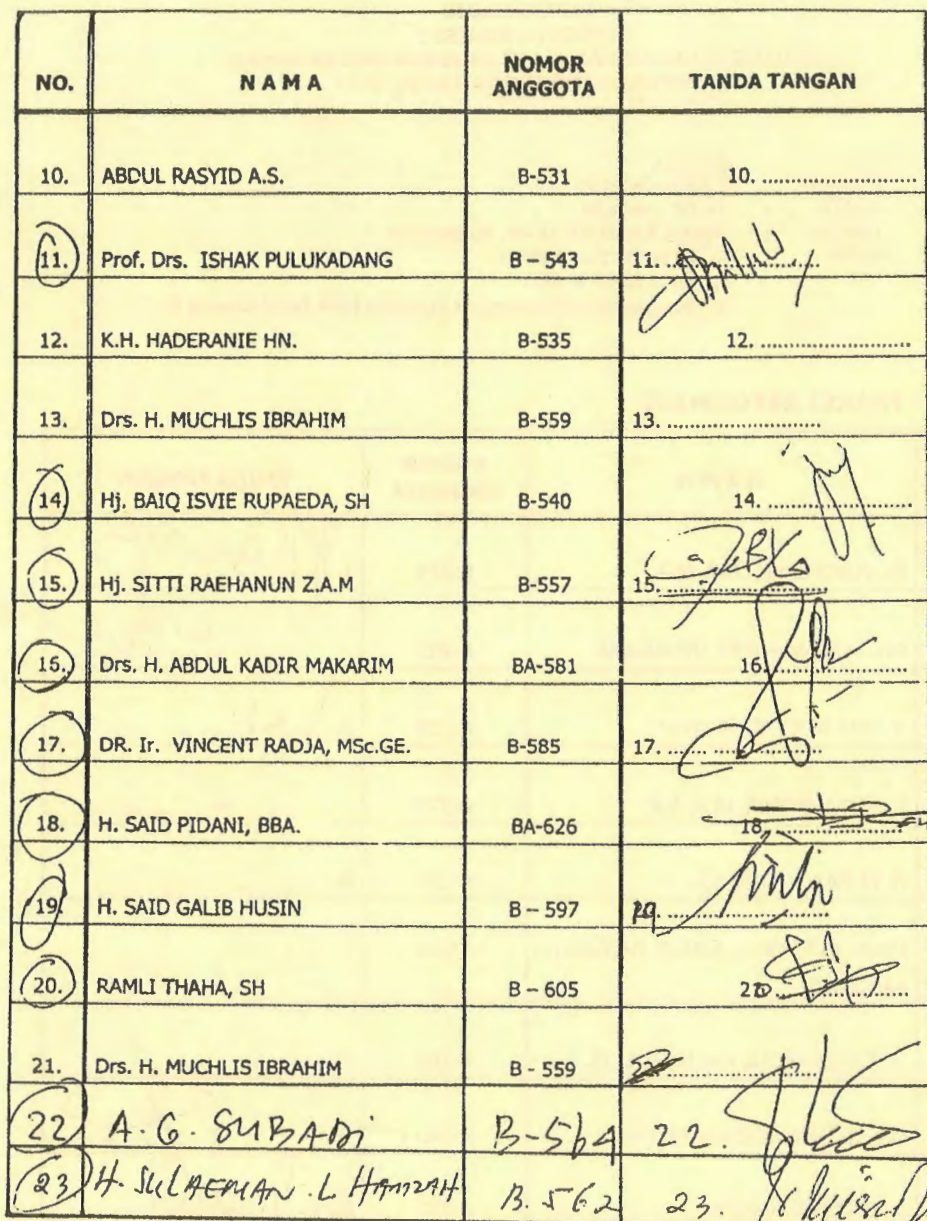 NO. N A M A NOMOR ANGGOTA TANDA TANGAN
10. ABDUL RASYID A.S. B-531 10. ........................
11. Prof. Drs. ISHAK PULUKADANG B – 543 11. ........................
12. K.H. HADERANIE HN. B-535 12. ........................
13. Drs. H. MUCHLIS IBRAHIM B-559 13. ........................
14. Hj. BAIQ ISVIE RUPAEDA, SH B-540 14. ........................
15. Hj. SITTI RAEHANUN Z.A.M B-557 15. ........................
16. Drs. H. ABDUL KADIR MAKARIM BA-581 16. ........................
17. DR. Ir. VINCENT RADJA, MSc.GE. B-585 17. ........................
18. H. SAID PIDANI, BBA. BA-626 18. ........................
19. H. SAID GALIB HUSIN B – 597 19. ........................
20. RAMLI THAHA, SH B – 605 20. ........................
21. Drs. H. MUCHLIS IBRAHIM B - 559 ........................
22 A. G. SUBADi B-564 22.
23 H. SULAEMAN . L HAMZAH B. 562 23.